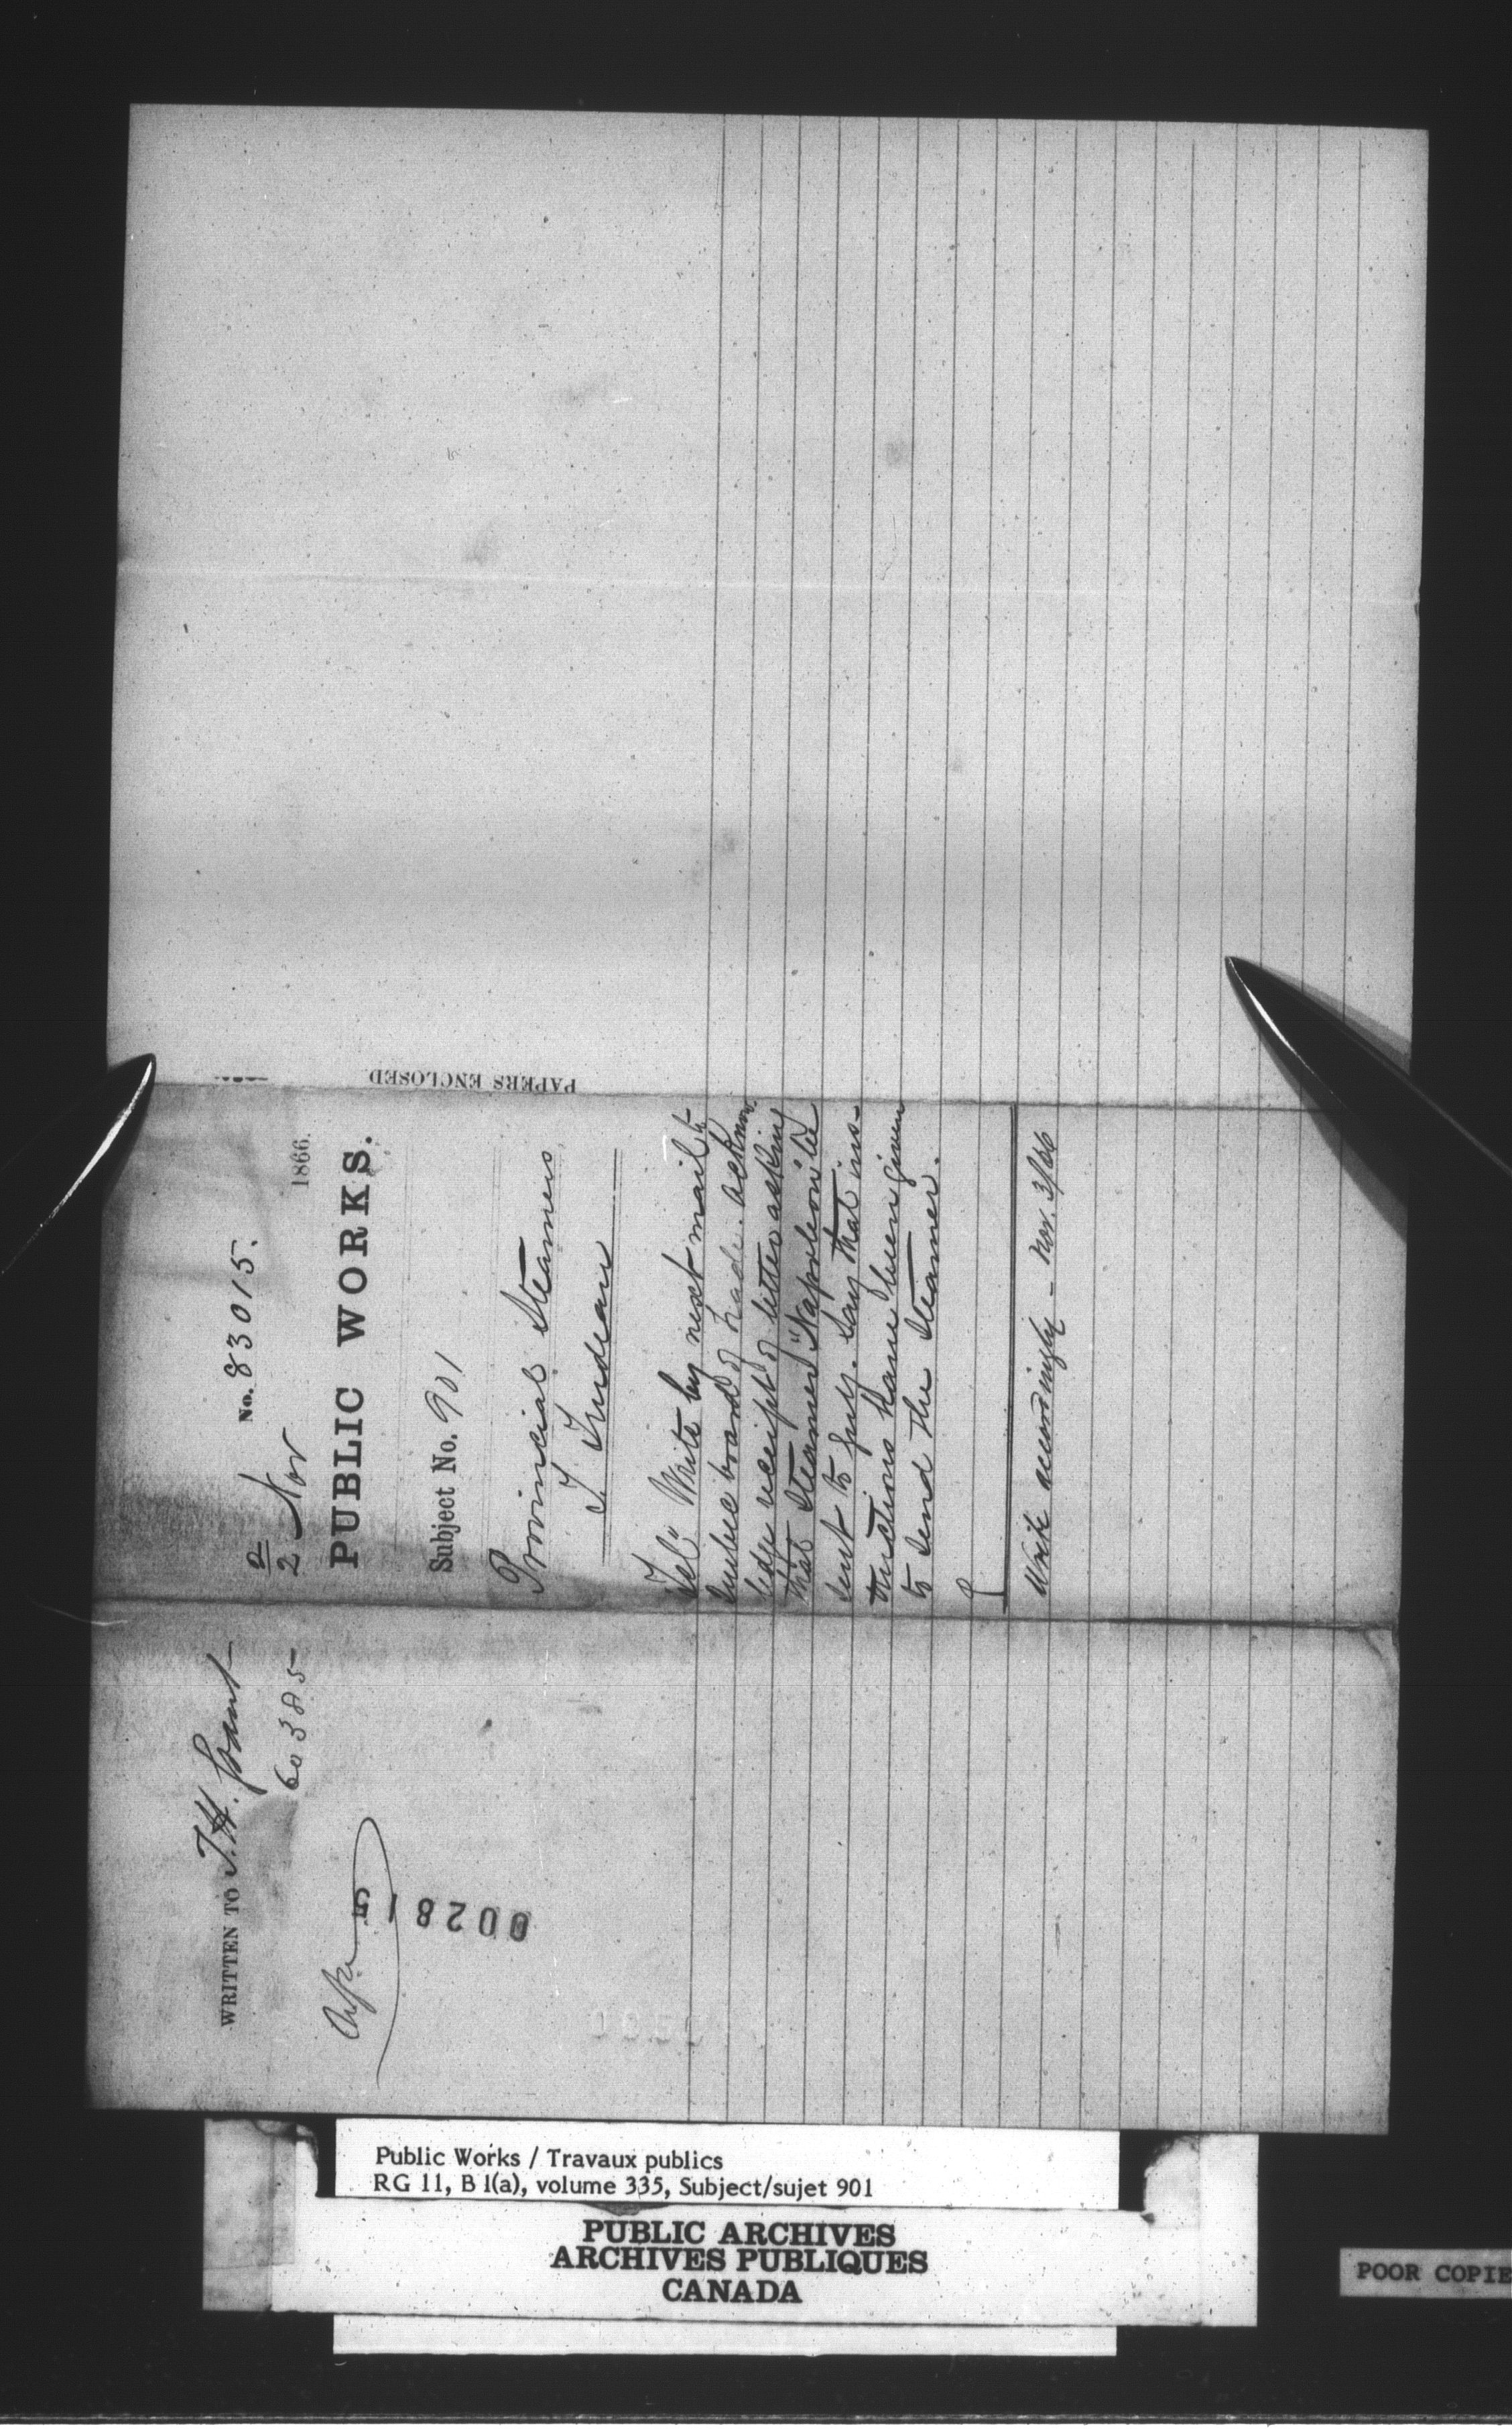 WRITTEN TO J.H. Grant
60385
002815
2
2 Nov
No. 83015.
1866.
PUBLIC WORKS.
Subject No. 901
Provincial Steamers
T Trudeau
Tel" Write by next mail to
Quebec board of trade. acknow-
ledge receipt of letter asking
that steamer "Napoleon" be
sent to Say that ins-
tructions have been given
to send the steamer.
Write accordingly - Nov. 3/66
PAPERS ENCLOSED
Public Works / Travaux publics
RG 11, B 1(a), volume 335, Subject/sujet 901
PUBLIC ARCHIVES
ARCHIVES PUBLIQUES
CANADA
POOR COPIE